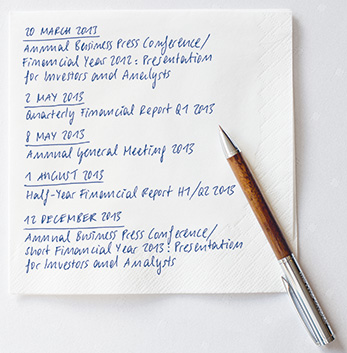 20 MARCH 2013
Annual Business Press Conference/
Financial Year 2012: Presentation
for Investors and Analysts
2 MAY 2013
Quarterly Financial Report Q1 2013
8 MAY 2013
Annual General Meeting 2013
1 AUGUST 2013
Half-Year Financial Report H1/Q2 2013
12 DECEMBER 2013
Annual Business Press Conference/
Short Financial Year 2013: Presentation
for Investors and Analysts